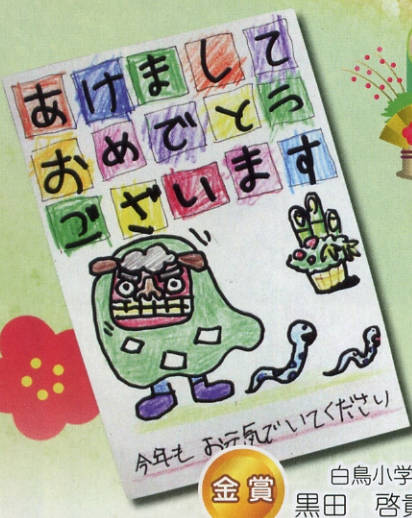 あけまして
おめでとう
ございます
今年も お元気でいてください
金賞
白鳥小学
黒田 啓貴